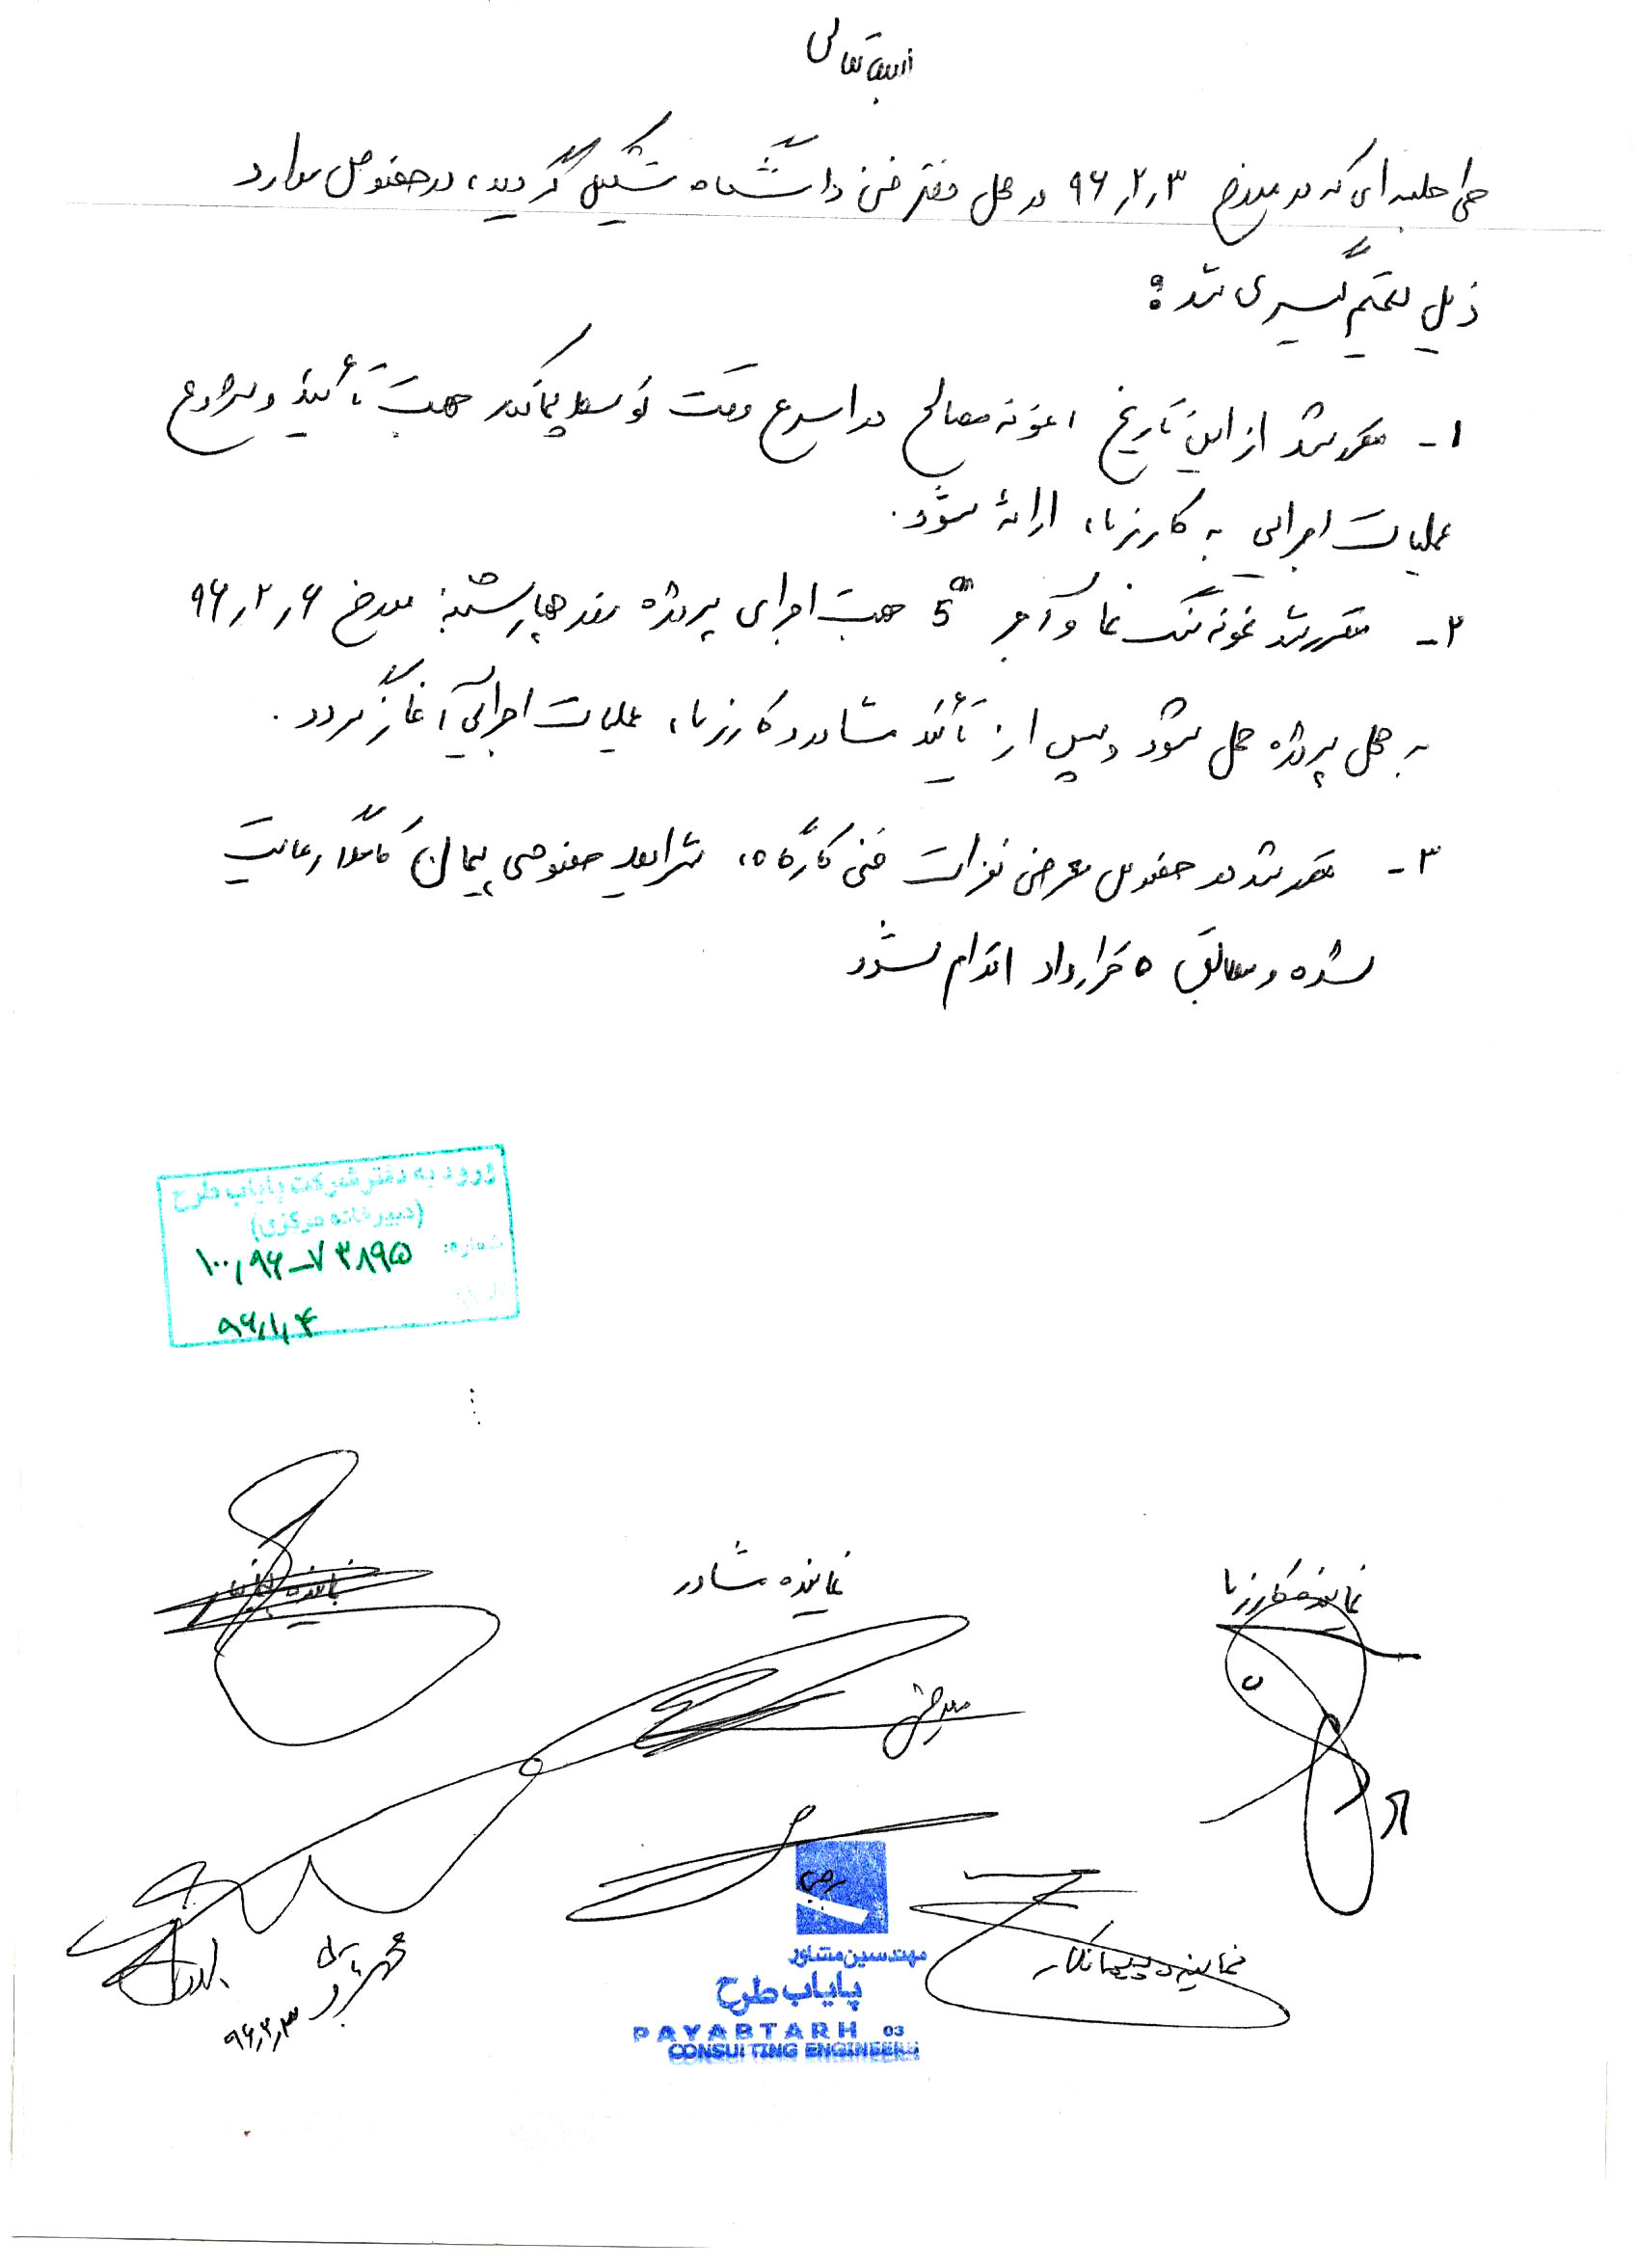 بسمه تعالی
طی جلسه ای که در مورخ ۹۶٫۲٫۳ در محل دفتر فنی دانشگاه تشکیل گردید، در خصوص موارد
ذیل تصمیم گیری شد:
۱- مقرر شد از این تاریخ، نمونه مصالح در اسرع وقت توسط پیمانکار جهت تأیید و شروع
عملیات اجرایی به کارفرما، ارائه شود.
۲- مقرر شد نمونه سنگ نما و آجر 5cm جهت اجرای پروژه روز چهارشنبه مورخ ۹۶٫۲٫۶
به محل پروژه حمل شود و پس از تأیید مشاور و کارفرما، عملیات اجرائی آغاز گردد.
۳- مقرر شد در خصوص معرفی نفرات فنی کارگاه، شرایط خصوصی پیمان کاملا رعایت
شده و مطابق قرارداد اقدام شود
ورود به دفتر شرکت پایاب طرح
(دبیرخانه مرکزی)
شماره: ۱۰۰٫۹۶-۷۳۸۹۵
نماینده کارفرما
نماینده مشاور
نماینده پیمانکار
۹۶٫۲٫۳
مهندسین مشاور
پایاب طرح
PAYABTARH 03
CONSULTING ENGINEERS